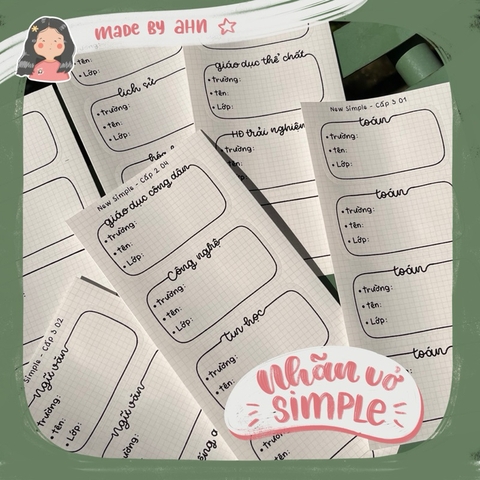 MADE BY AHN
Lớp:
lịch sử
• Trường:
• Tên:
• Lớp:
giáo dục thể chất
• Trường:
• Tên:
• Lớp:
HĐ trải nghiệm
• Trường:
• Tên:
• Lớp:
New Simple - Cấp 3 01
toán
• Trường:
• Tên:
• Lớp:
toán
• Trường:
• Tên:
• Lớp:
toán
• Trường:
• Tên:
• Lớp:
toán
New Simple - Cấp 2 04
giáo dục công dân
• Trường:
• Tên:
• Lớp:
Công nghệ
• Trường:
• Tên:
• Lớp:
tin học
• Trường:
• Tên:
• Lớp:
Simple - Cấp 3 02
Ngữ văn
Trường:
• Tên:
• Lớp:
Ngữ văn
Trường:
Tên:
Nhãn vở
SIMPLE